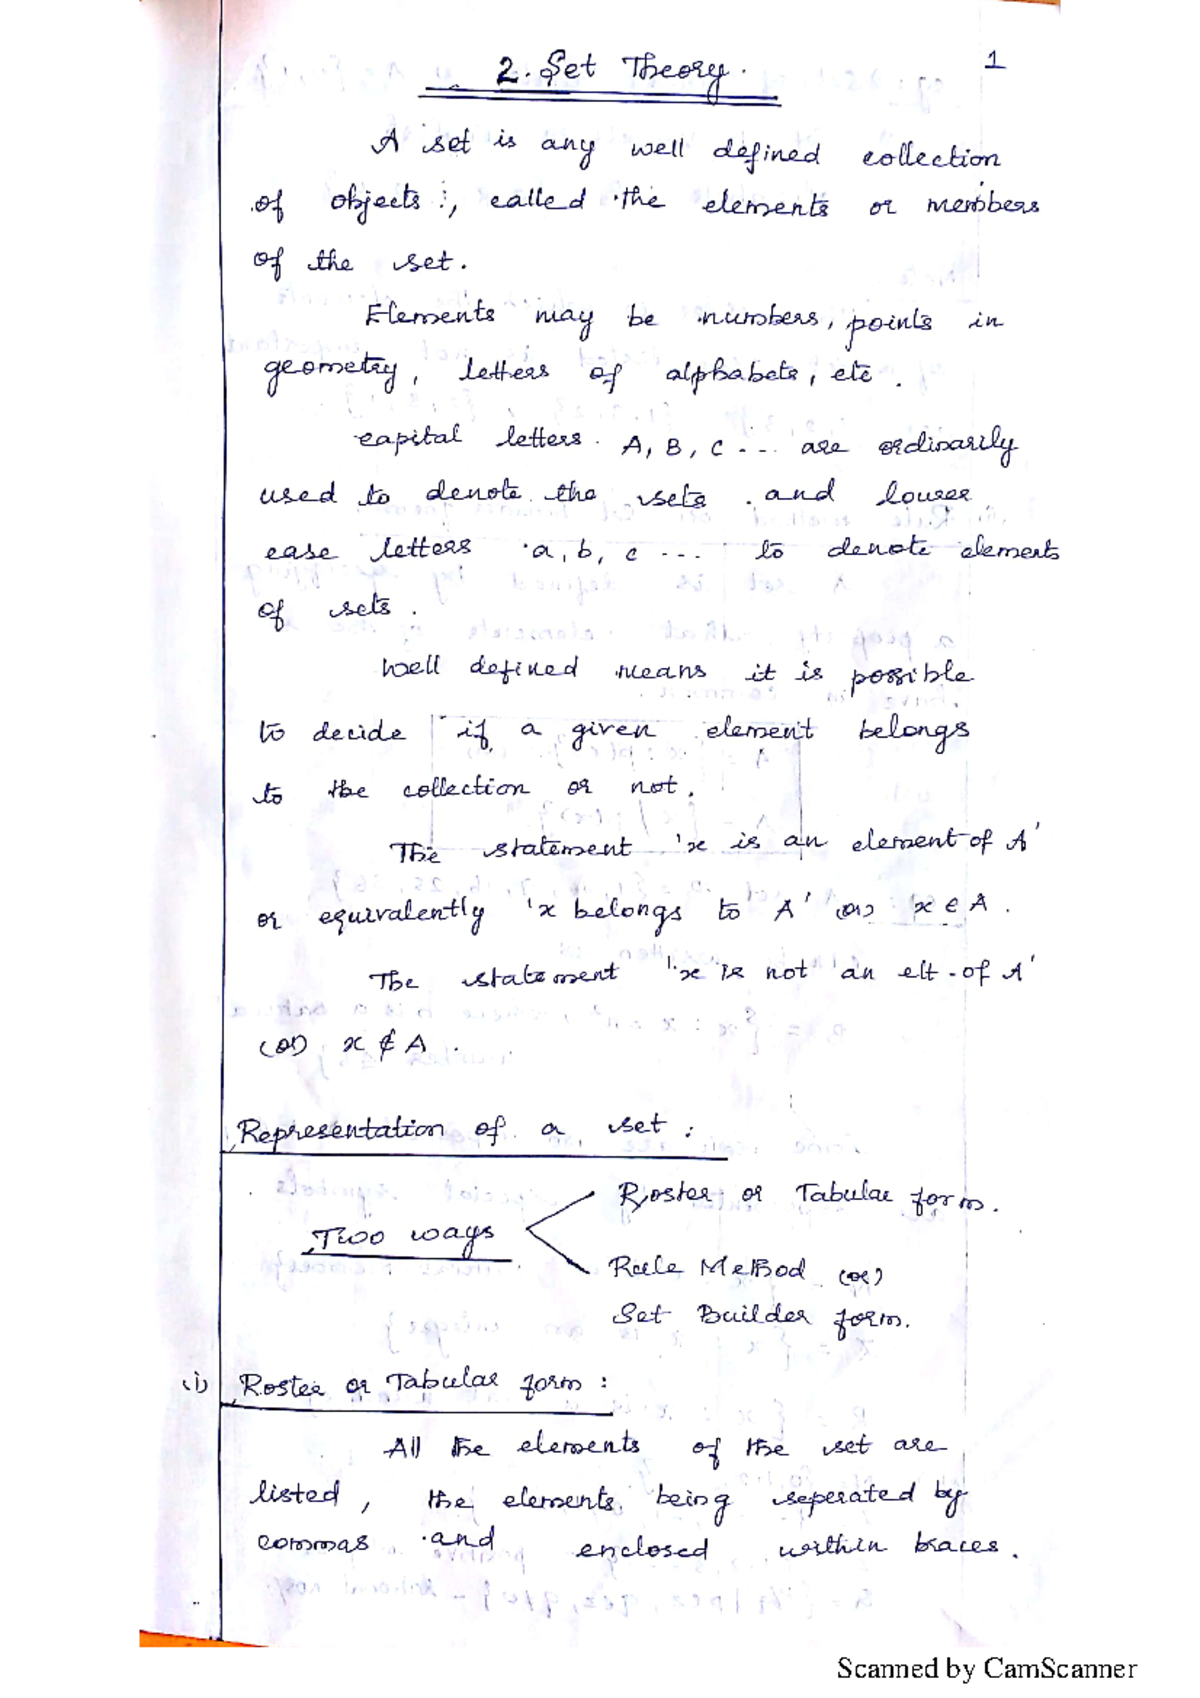 2. Set Theory.
1
A set is any well defined collection
of objects, called the elements or members
of the set.
Elements may be numbers, points in
geometry, letters of alphabets, etc.
capital letters A, B, C ... are ordinarily
used to denote the sets and lower
case letters a, b, c ... to denote elements
of sets.
Well defined means it is possible
to decide if a given element belongs
to the collection or not.
The statement 'x is an element of A'
or equivalently 'x belongs to A' (or) x ∈ A.
The statement 'x is not an elt. of A'
(or) x ∉ A.
Representation of a set :
Two ways
Roster or Tabular form.
Rule Method (or)
Set Builder form.
(i) Roster or Tabular form :
All the elements of the set are
listed, the elements being seperated by
commas and enclosed within braces.
Scanned by CamScanner